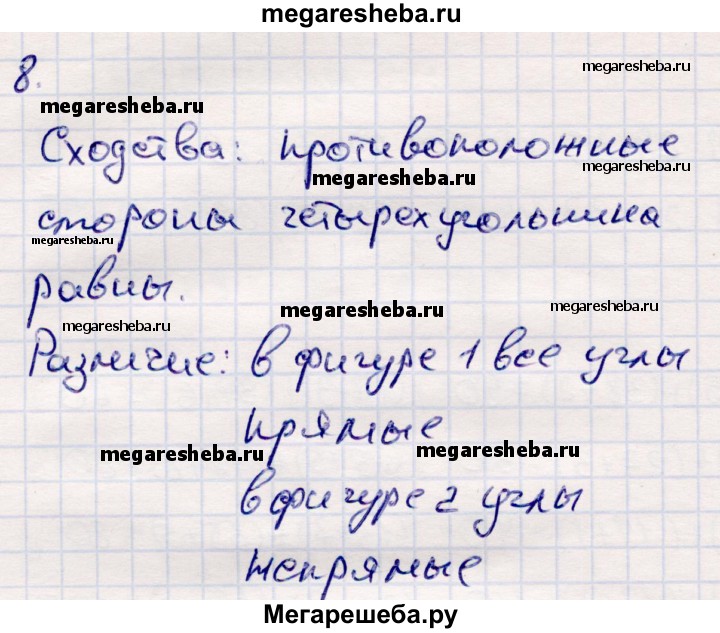 megaresheba.ru
8.
megaresheba.ru
megaresheba.ru
Сходства: противоположные
megaresheba.ru
megaresheba.ru
стороны четырехугольника
megaresheba.ru
равны.
megaresheba.ru
megaresheba.ru
megaresheba.ru
Различие: в фигуре 1 все углы
прямые
megaresheba.ru
megaresheba.ru
в фигуре 2 углы
непрямые
Мегарешеба.ру